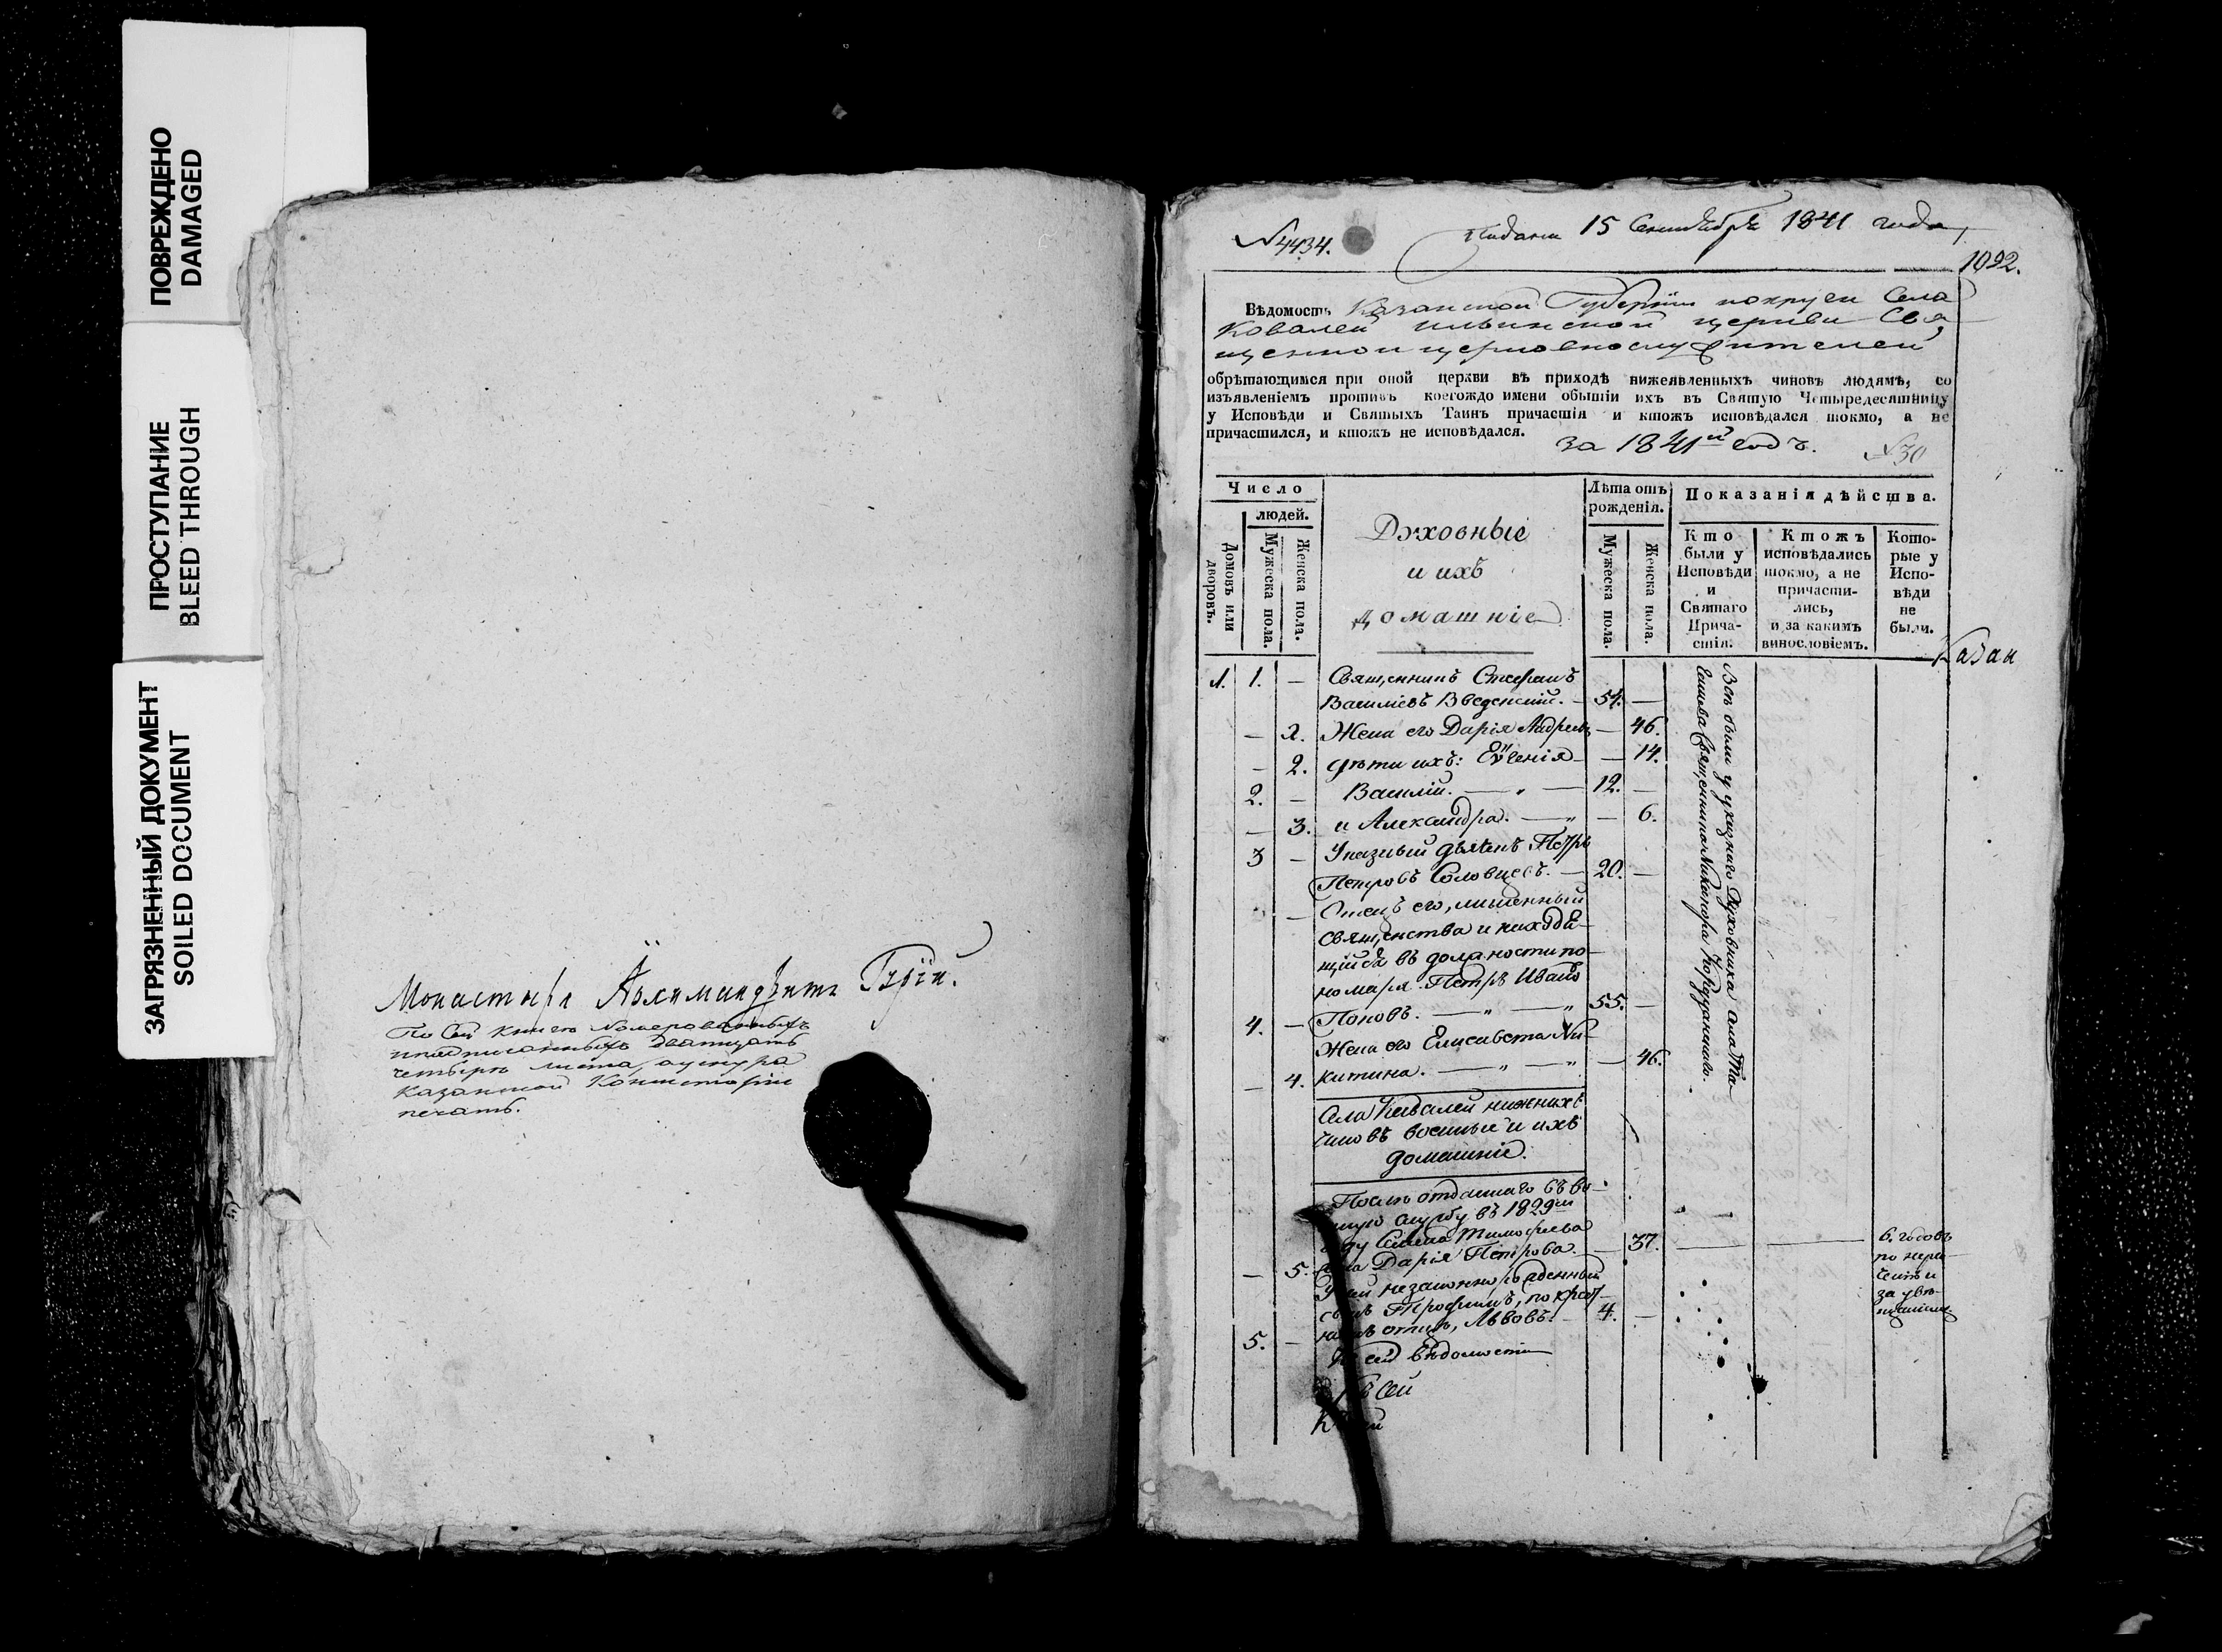 ПОВРЕЖДЕНО
DAMAGED
ПРОСТУПАНИЕ
BLEED THROUGH
ЗАГРЯЗНЕННЫЙ ДОКУМЕНТ
SOILED DOCUMENT
Монастыря Архимандритъ Гурій.
По сей книге номерованныхъ
дватцать
четыре листа, а у шнура
Казанской Консисторіи
печать.
№4434.
Подана 15 Сентября 1841 года,
1092.
Вѣдомость Казанской Губерніи и округи Села
Ковалей Ильинской церкви Свя,
щенно и церковнослужителей
обрѣтающимся при оной церкви въ приходѣ нижеявленныхъ чиновъ людямъ, со
изъявленіемъ противъ коегождо имени обытіи ихъ въ Святую Четыредесятницу
у Исповѣди и Святыхъ Таинъ причастія и ктожъ исповѣдался токмо, а не
причастился, и ктожъ не исповѣдался.
за 1841й годъ.
№30
Число
людей.
Домовъ или дворовъ.
Мужеска пола.
Женска пола.
Духовные
и ихъ
домашніе
Лѣта отъ
рожденія.
Мужеска пола.
Женска пола.
Показанія дѣйства.
Кто
были у
Исповѣди
и
Святаго
Прича-
стія.
Ктожъ
исповѣдались
токмо, а не
причасти-
лись,
и за какимъ
винословіемъ.
Кото-
рые у
Испо-
вѣди
не
были.
Казан
1. 1. — Священникъ Стефанъ
Васильевъ Введенскій. — 54. —
— 1. Жена его Дарія Андреева — 46.
— 2. Дѣти ихъ: Еѵгенія — 14.
2. — Василій. — „ — 12. —
— 3. и Александра. — „ — 6.
3 — Указный дьячекъ Петръ
Петровъ Соловцевъ. — 20. —
— Отецъ его, лишенный
священства и находя-
щійся въ должности по-
номаря Петръ Ивано
4. — Поповъ. — „ — „ 55. —
Жена его Елисавета Ни-
— 4. китина. — „ — „ — 46.
Всѣ были у указнаго Духовника села Та
Священника Никанора
Села Ковалей нижнихъ
чиновъ военные и ихъ
домашніе.
Послѣ отданнаго въ во-
службу въ 1829м
году Семена Тимофеева
— 5. жена Дарія Петрова. — 37. — —
6. годовъ
по нера
за
незаконнорожденный
сынъ Трофимъ, по крест-
5. — отцѣ, Львовъ. — 4. —
сей вѣдомости
сей